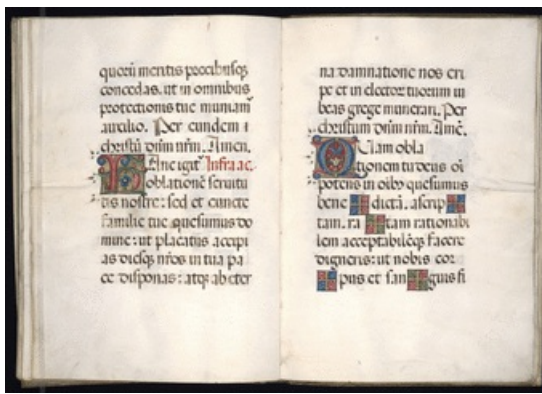 querū meritis precibusq;
concedas. ut in omnibus
protectionis tue muniam̄
auxilio. Per eundem
christū dn̄m nr̄m. Amen.
Hanc igit̄ Infra ac.
oblationē servitu
tis nostre: sed et cuncte
familie tue quesumus do
mine: ut placatus accipi
as diesq; nr̄os in tua pa
ce disponas: atq; ab eter
na damnatione nos eri
pe et in electorum tuorum iu
beas grege numerari. Per
christum dn̄m nr̄m. Amē.
Quam obla
tionem tu deus oī
potens in oībꝰ quesumus
bene ✠ dictā. ascrip ✠
tam. ra ✠ tam rationabi
lem acceptabilēq; facere
digneris: ut nobis cor
✠ pus et san ✠ guis fi